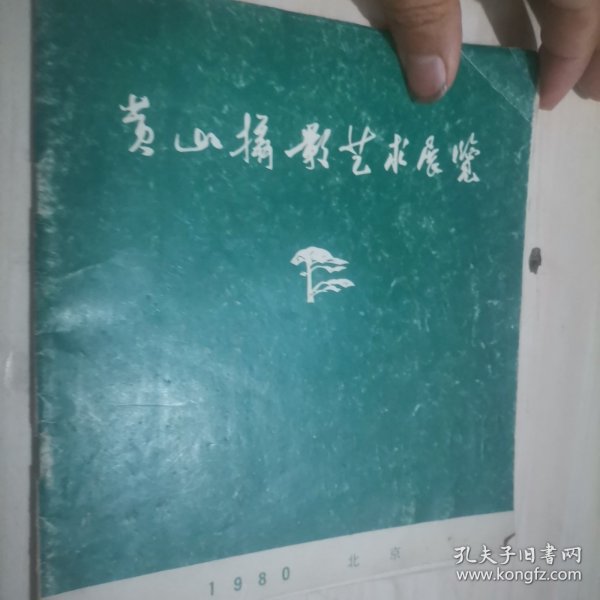 黄山摄影艺术展览
1980 北京
孔夫子旧书网
www.kongfz.com